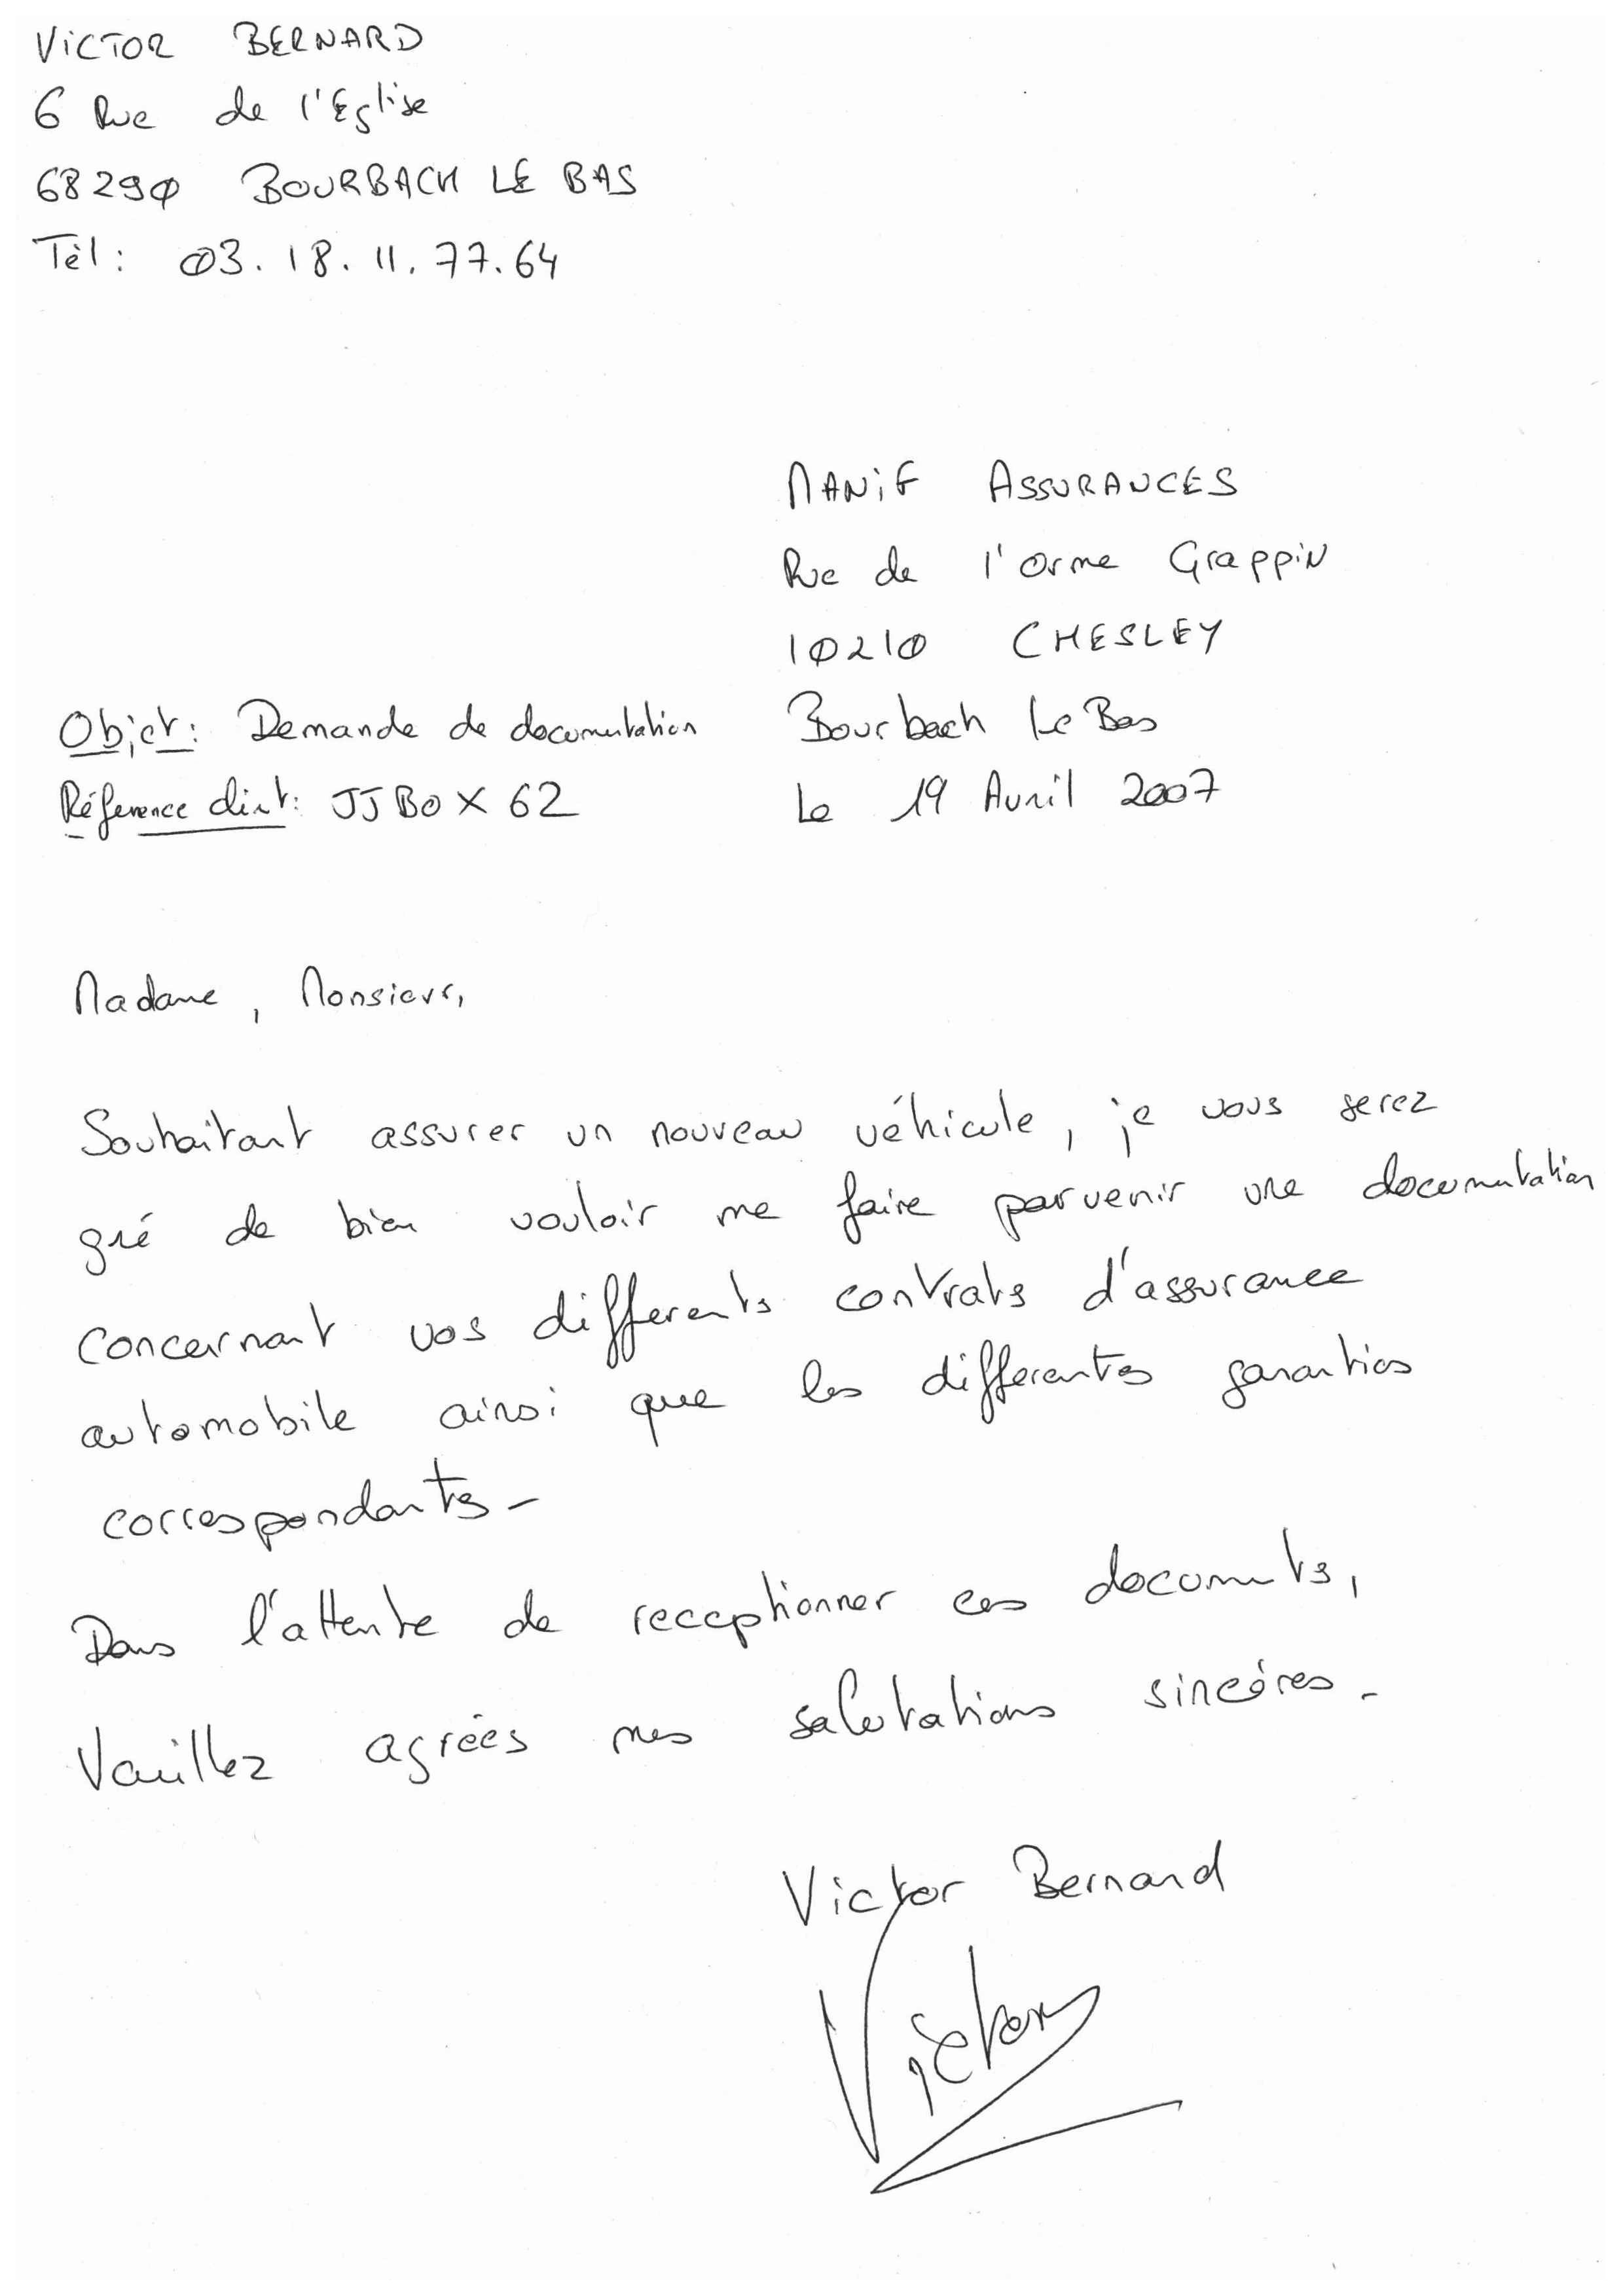 VICTOR BERNARD
6 Rue de l'Eglise
68290 BOURBACH LE BAS
Tèl: 03.18.11.77.64
MANIF ASSURANCES
Rue de l'orme Grappin
10210 CHESLEY
Objet: Demande de documentation
Bourbach Le Bas
Référence client: JJBOX62
Le 19 Avril 2007
Madame, Monsieur,
Souhaitant assurer un nouveau véhicule, je vous serez
gré de bien vouloir me faire parvenir une documentation
concernant vos differents contrats d'assurance
automobile ainsi que les differentes garanties
correspondantes-
Dans l'attente de receptionner ces documents,
Veuillez agréés mes salutations sincéres-
Victor Bernard
Victor